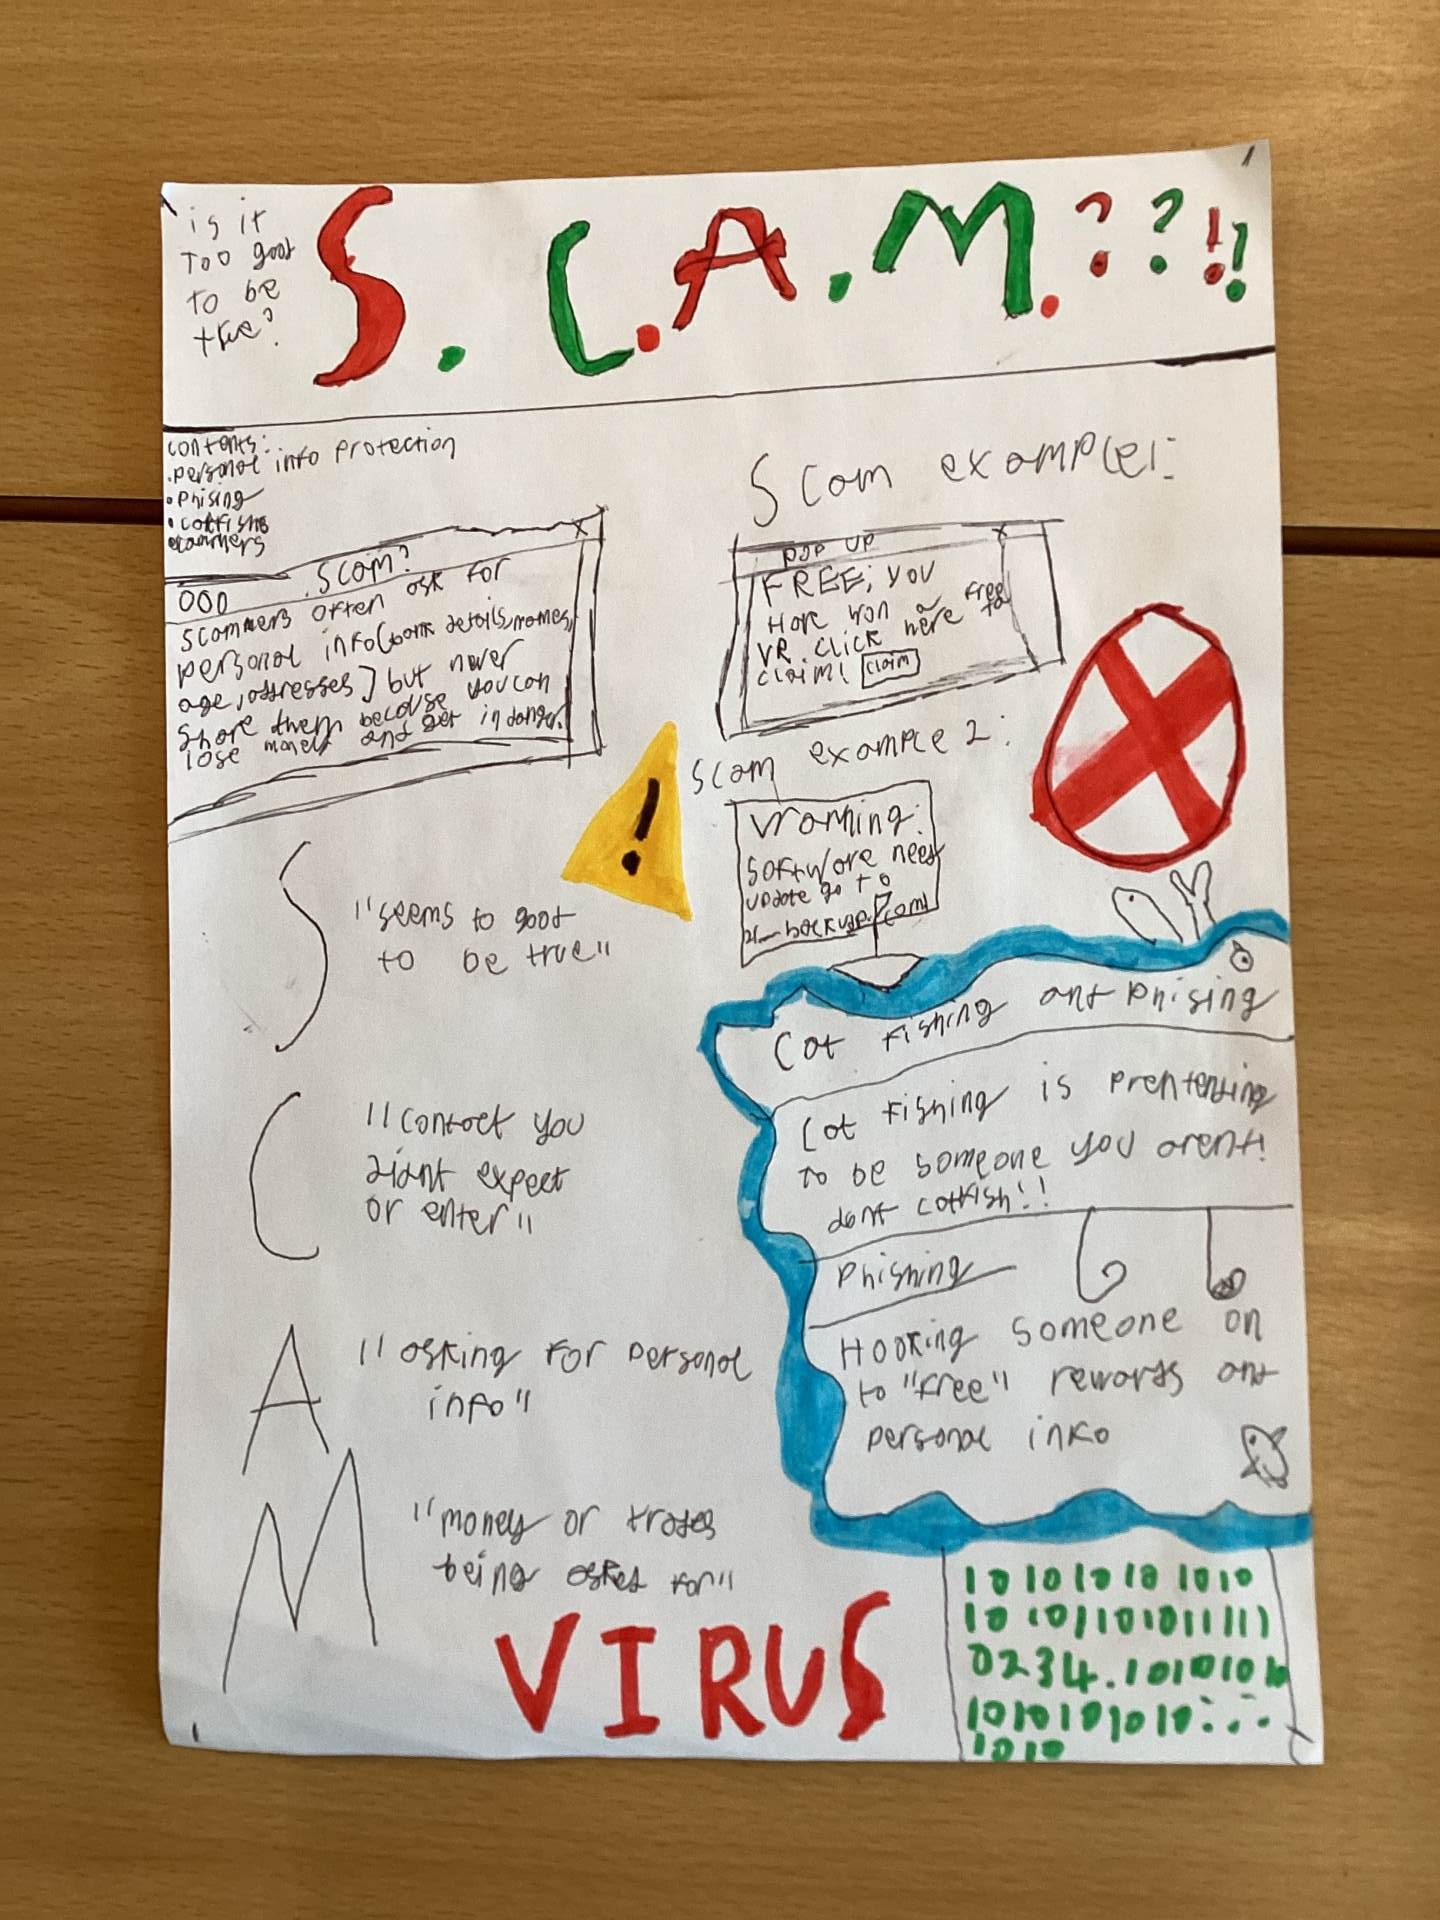 is it
Too good
to be
true?
S.C.A.M.??!!
contents:
.personal info protection
•Phising
•catfishs
scammers
Scam?
Scammers often ask for
personal info(bank details,names,
age,addresses) but never
share them because you can
lose money and get in danger.
Scam example1:
POP UP
X
FREE; YOU
Have won a free
VR. CLICK here to
claim! claim
Scam example 2:
Warning:
Software need
update go to
backup.com!
!
S
"seems to good
to be true"
C
"Contact you
didnt expect
or enter"
A
"asking for personal
info"
M
"money or trades
being asked for"
Cat fishing and phising
Cat fishing is prentending
to be someone you arent!
dont catfish!!
Phishing
Hooking someone on
to "free" rewards and
personal info
VIRUS